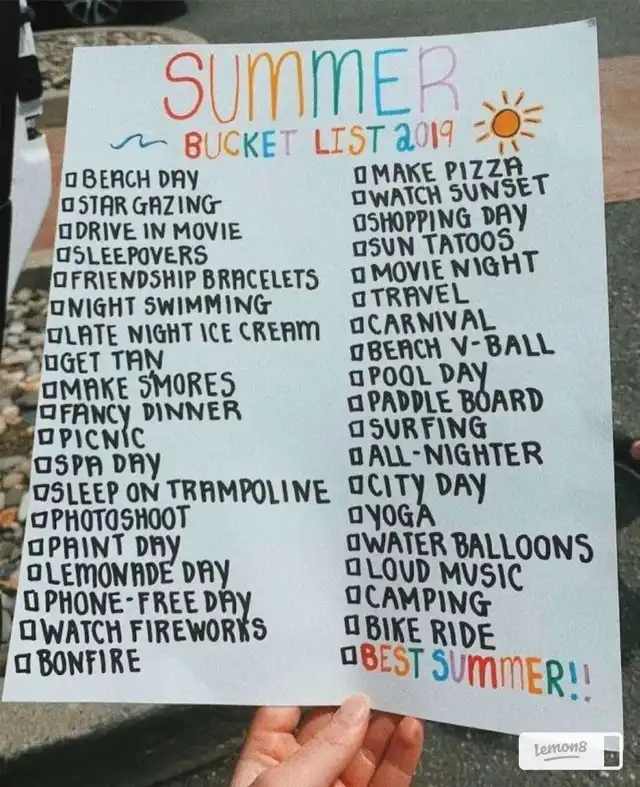 SUMMER
BUCKET LIST 2019
BEACH DAY
STAR GAZING
DRIVE IN MOVIE
SLEEPOVERS
FRIENDSHIP BRACELETS
NIGHT SWIMMING
LATE NIGHT ICE CREAM
GET TAN
MAKE S'MORES
FANCY DINNER
PICNIC
SPA DAY
SLEEP ON TRAMPOLINE
PHOTOSHOOT
PAINT DAY
LEMONADE DAY
PHONE-FREE DAY
WATCH FIREWORKS
BONFIRE
MAKE PIZZA
WATCH SUNSET
SHOPPING DAY
SUN TATOOS
MOVIE NIGHT
TRAVEL
CARNIVAL
BEACH V-BALL
POOL DAY
PADDLE BOARD
SURFING
ALL-NIGHTER
CITY DAY
YOGA
WATER BALLOONS
LOUD MUSIC
CAMPING
BIKE RIDE
BEST SUMMER!!
Lemon8